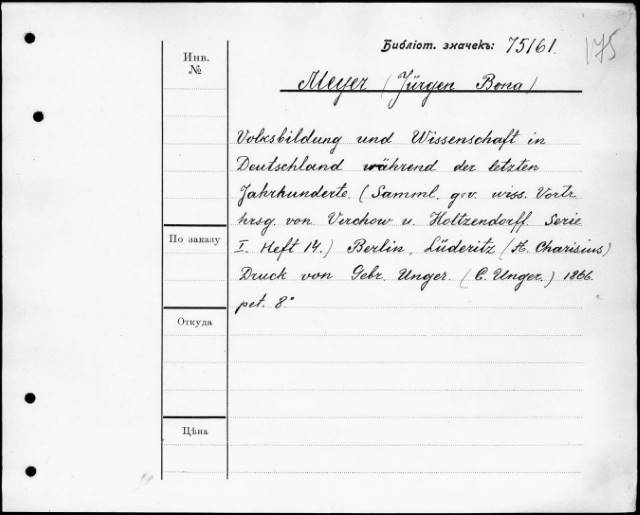 Библіот. значекъ: 75/61.
175
Инв.
№
Meyer (Jürgen Bona)
Volksbildung und Wissenschaft in
Deutschland während der letzten
Jahrhunderte. (Samml. g. v. wiss. Vortr.
hrsg. von Verchow u. Holtzendorff. Serie
По заказу
I. Heft 14.) Berlin, Lüderitz (A. Charisius)
Druck von Gebr. Unger. (C. Unger.) 1866.
pet. 8.°
Откуда
Цѣна